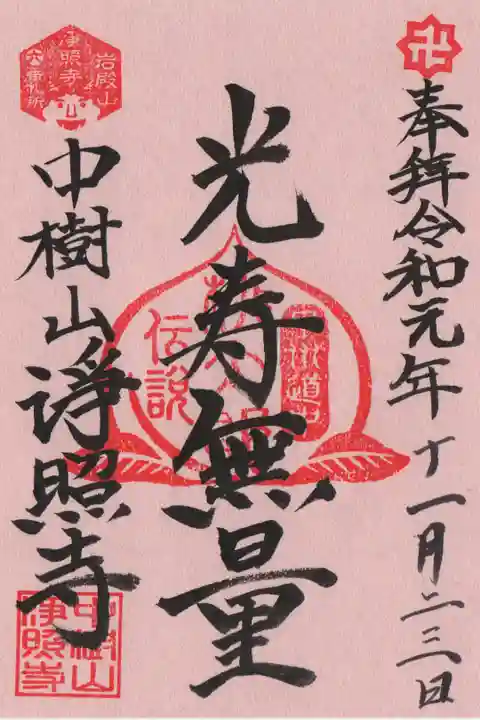 卍
奉拝令和元年十一月二三日
光寿無量
伝説
岩殿山
浄照寺
六番札所
中樹山諍照寺
中樹山
浄照寺